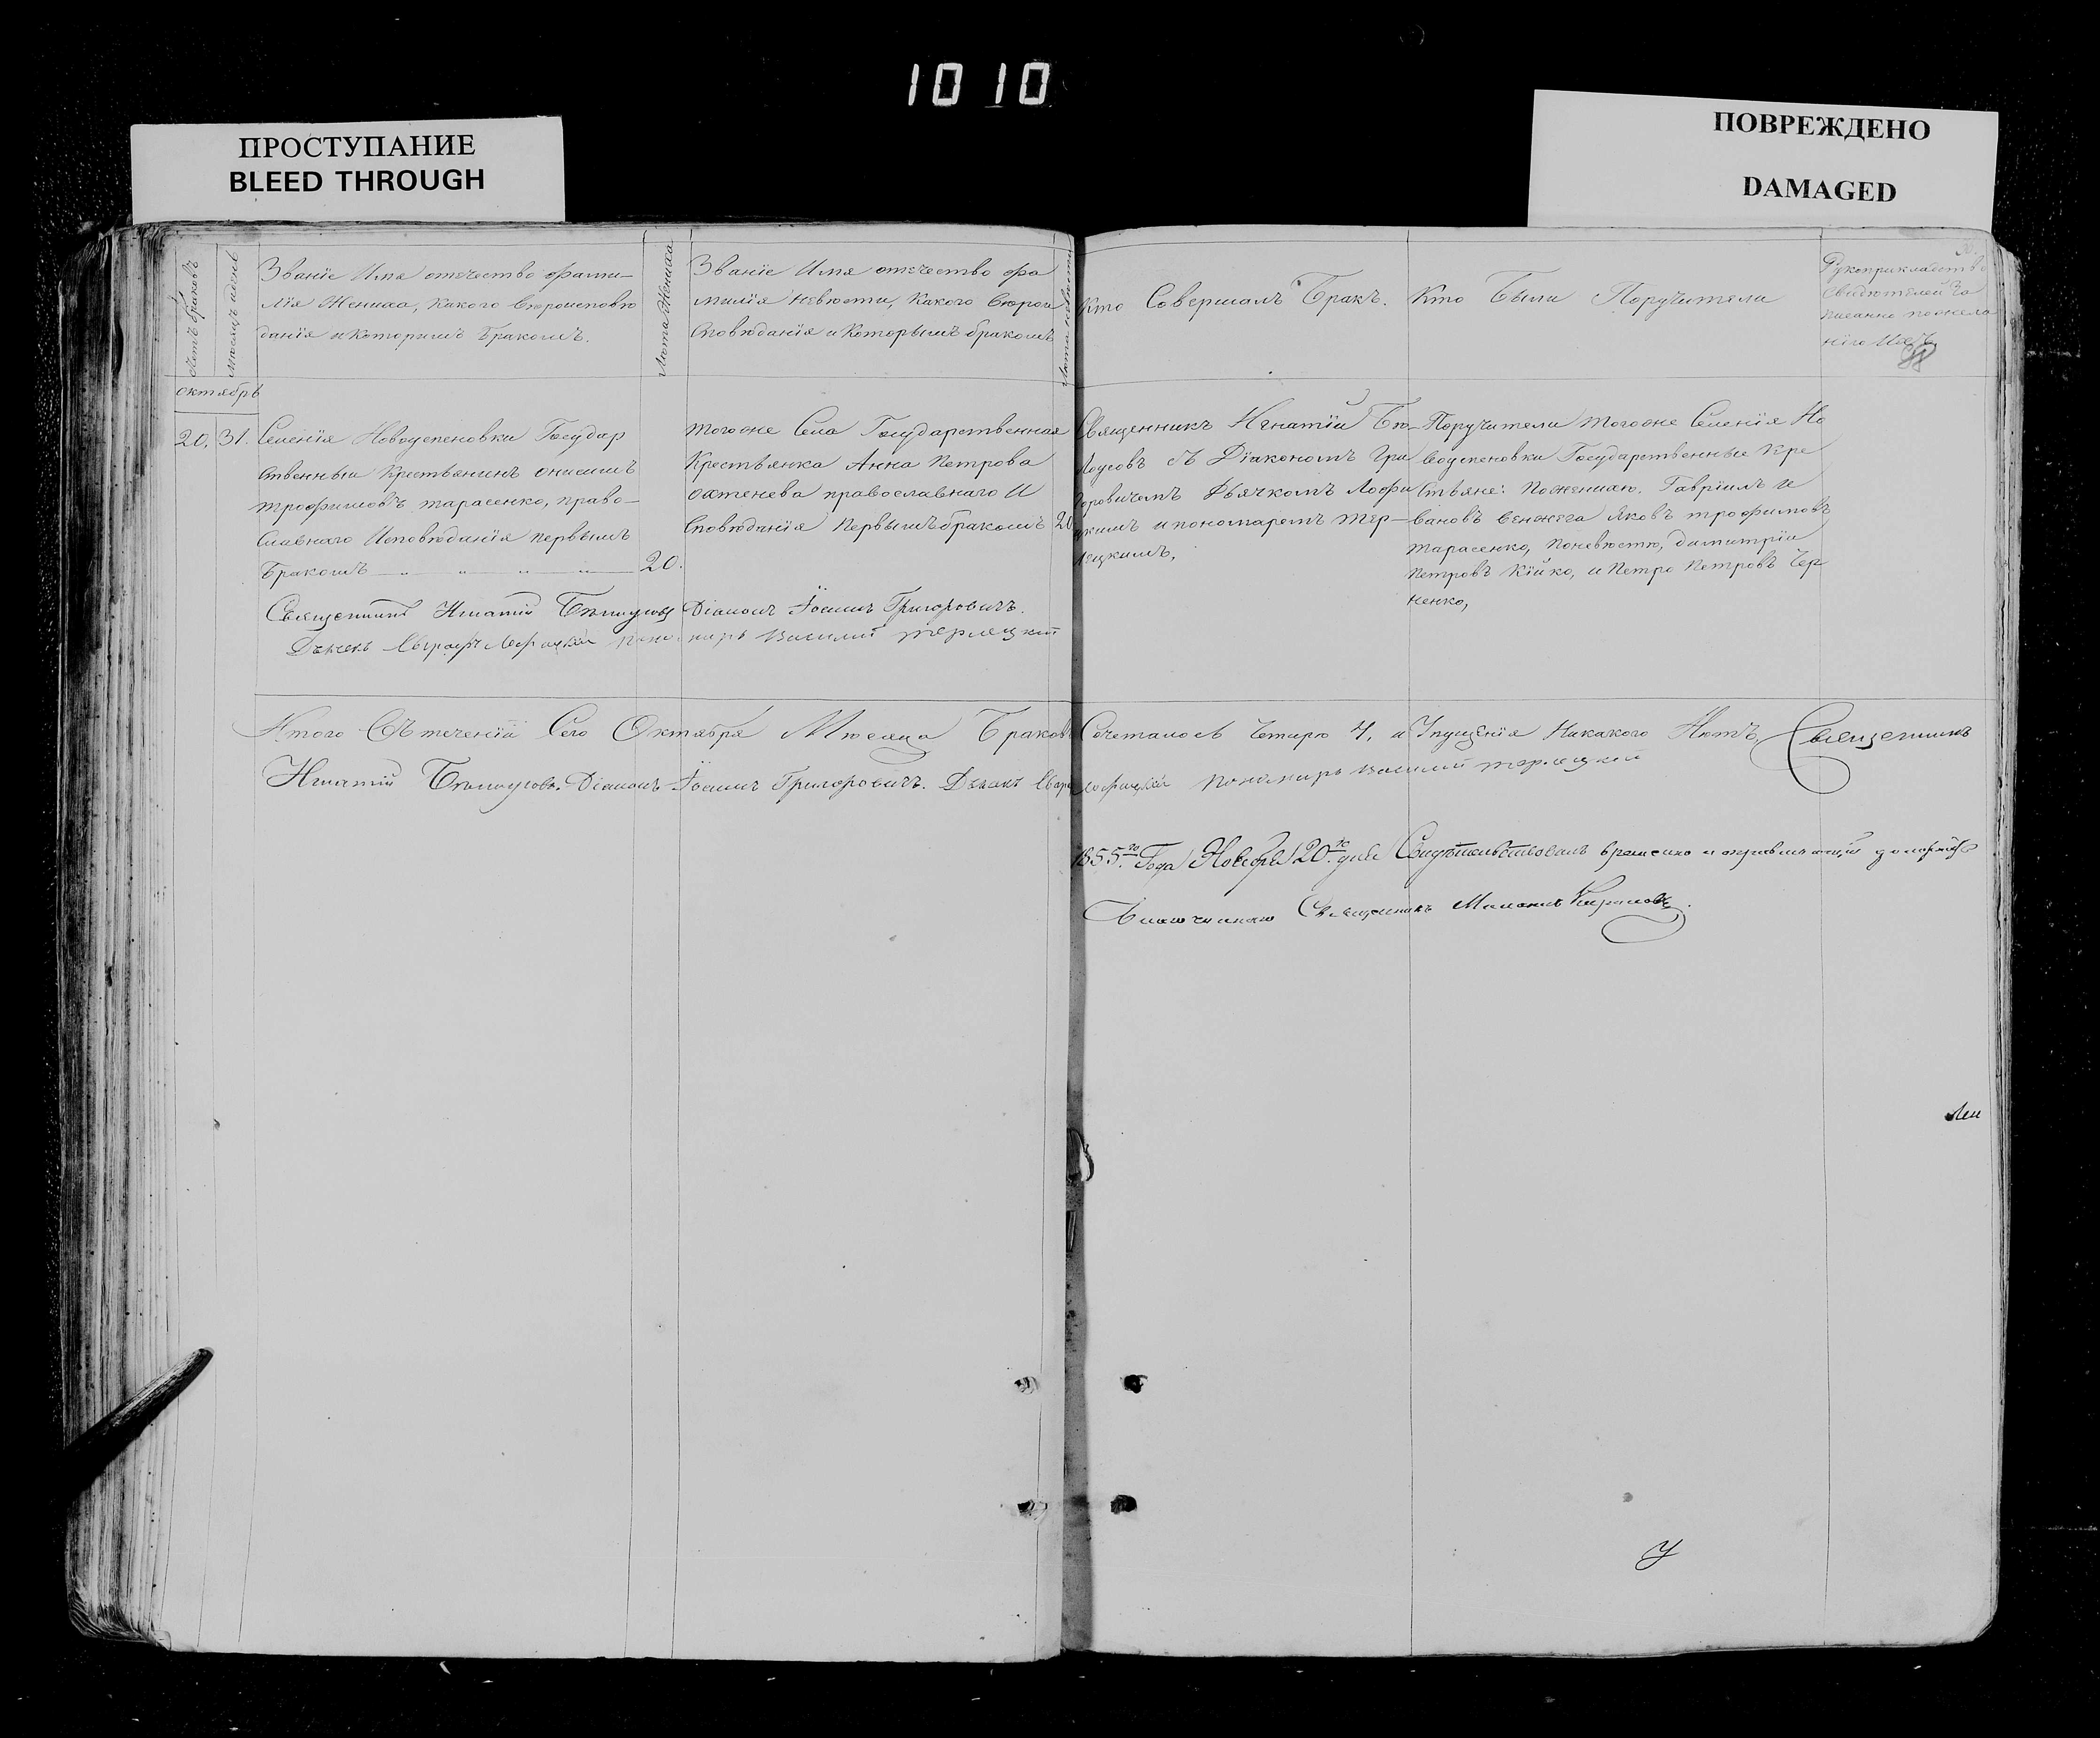 1010
ПРОСТУПАНИЕ
BLEED THROUGH
ПОВРЕЖДЕНО
DAMAGED
Счетъ браковъ
Мѣсяцъ и день
Званіе Имя отечество фами-
лія Жениха, какого вѣроисповѣ
данія и которимъ бракомъ.
Лѣта Жениха
Званіе Имя отечество фа
милія невѣсти, какого вѣрои
сповѣданія и которымъ бракомъ
Лѣта невѣсти
Кто Совершалъ Бракъ.
Кто Были Поручители
Рукоприкладство
Свидѣтелей за
писанно по жела
нію Ихъ
88
октябрь
20. 31.
Селенія Новоуспеновки Государ
ственныи крестьянинъ онисимъ
трофимовъ тарасенко, право-
славнаго Исповѣданія первымъ
бракомъ 20.
тогоже Села Государственная
крестьянка Анна петрова
православнаго И
сповѣданія первымъ бракомъ 20
Священникъ Игнатіи Бѣ-
лоусовъ съ Діакономъ Гри
горовичемъ Дьячкомъ Лофи
цкимъ и пономаремъ тер-
лецкимъ,
Поручители тогоже Селенія Но
воуспеновки Государственные кре
стьяне: по жениху. Гавріилъ и
вановъ Яковъ трофимовъ
тарасенко, по невѣстѣ, димитріи
петровъ Кійко, и петро петровъ Чер
ненко,
Священникъ Игнатій Бѣлоусовъ Діаконъ Іоаннъ Григоровичъ.
Дьячекъ Лофицкій пономарь василий терлецкий
Итого Съ теченіи Сего Октября Мѣсяца Браковъ Сочеталось четирѣ 4, и Упущенія никакого Нѣтъ, Священникъ
Игнатій Бѣлоусовъ. Діаконъ Іоаннъ Григоровичъ. Дьячекъ Лофицкій пономарь василий терлецкий
1855го Года Ноября 20го дня Свидѣтельствовалъ временно исправляющій должность
Благочиннаго Священникъ